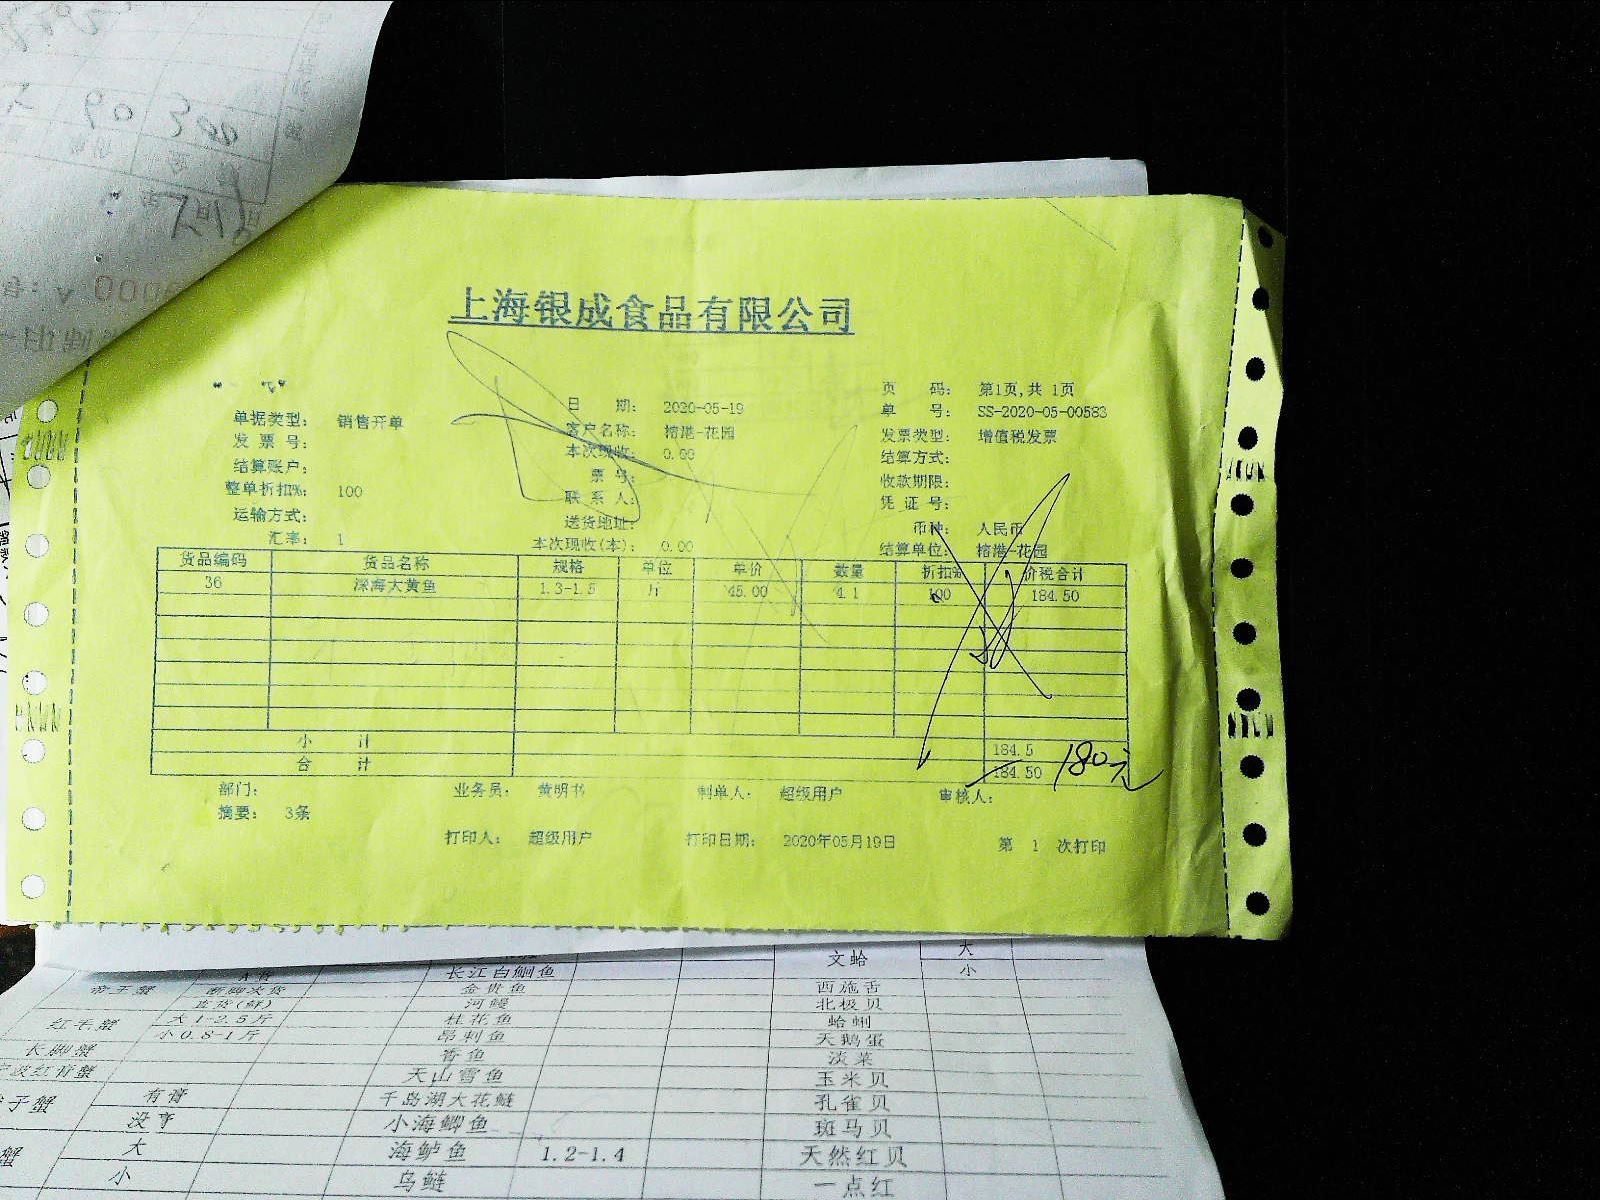 90 300
上海银成食品有限公司
页 码： 第1页,共 1页
日 期： 2020-05-19 单 号： SS-2020-05-00583
单据类型： 销售开单 客户名称： 榕港-花园 发票类型： 增值税发票
发 票 号： 本次现收： 0.00 结算方式：
结算账户： 票 号： 收款期限：
整单折扣%： 100 联 系 人： 凭 证 号：
运输方式： 送货地址： 币种： 人民币
汇率： 1 本次现收(本)： 0.00 结算单位： 榕港-花园
货品编码 货品名称 规格 单位 单价 数量 折扣% 价税合计
36 深海大黄鱼 1.3-1.5 斤 45.00 4.1 100 184.50
小 计 184.5
合 计 184.50 180元
部门： 业务员： 黄明书 制单人： 超级用户 审核人：
摘要： 3条
打印人： 超级用户 打印日期： 2020年05月19日 第 1 次打印
文蛤 大
长江白鮰鱼 小
帝王蟹 断脚次货 金贵鱼 西施舌
河鳗 北极贝
红毛蟹 大1-2.5斤 桂花鱼 蛤蜊
小0.8-1斤 昂刺鱼 天鹅蛋
长脚蟹 香鱼 淡菜
红膏蟹 天山雪鱼 玉米贝
子蟹 有膏 千岛湖大花鲢 孔雀贝
没膏 小海鲫鱼 斑马贝
蟹 大 海鲈鱼 1.2-1.4 天然红贝
小 乌鲢 一点红